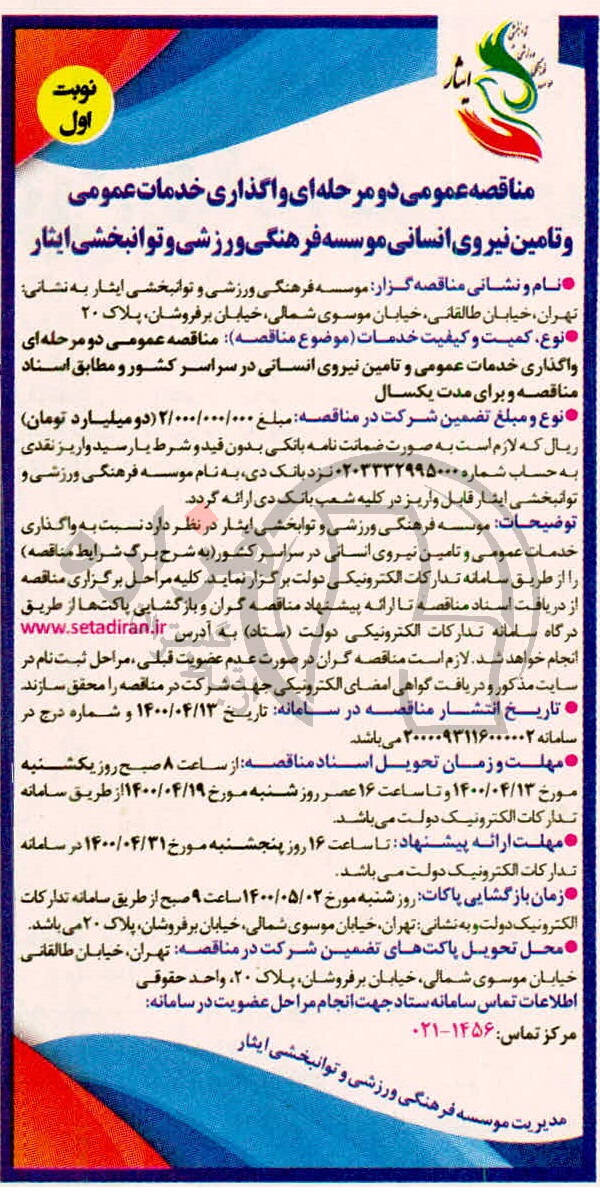 نوبت
اول
ایثار
مناقصه عمومی دو مرحله‌ای واگذاری خدمات عمومی
و تامین نیروی انسانی موسسه فرهنگی ورزشی و توانبخشی ایثار
●نام و نشانی مناقصه گزار: موسسه فرهنگی ورزشی و توانبخشی ایثار به نشانی:
تهران، خیابان طالقانی، خیابان موسوی شمالی، خیابان برفروشان، پلاک ۲۰
●نوع، کمیت و کیفیت خدمات (موضوع مناقصه): مناقصه عمومی دو مرحله‌ای
واگذاری خدمات عمومی و تامین نیروی انسانی در سراسر کشور و مطابق اسناد
مناقصه و برای مدت یکسال
●نوع و مبلغ تضمین شرکت در مناقصه: مبلغ ۲/۰۰۰/۰۰۰/۰۰۰ (دو میلیارد تومان)
ریال که لازم است به صورت ضمانت نامه بانکی بدون قید و شرط یا رسید واریز نقدی
به حساب شماره ۰۲۰۳۳۳۲۹۹۵۰۰۰ نزد بانک دی، به نام موسسه فرهنگی ورزشی و
توانبخشی ایثار قابل واریز در کلیه شعب بانک دی ارائه گردد.
توضیحات: موسسه فرهنگی ورزشی و توابخشی ایثار در نظر دارد نسبت به واگذاری
خدمات عمومی و تامین نیروی انسانی در سراسر کشور(به شرح برگ شرایط مناقصه)
را از طریق سامانه تدارکات الکترونیکی دولت برگزار نماید. کلیه مراحل برگزاری مناقصه
از دریافت اسناد مناقصه تا ارائه پیشنهاد مناقصه گران و بازگشایی پاکت‌ها از طریق
درگاه سامانه تدارکات الکترونیکی دولت (ستاد) به آدرس www.setadiran.ir
انجام خواهد شد. لازم است مناقصه گران در صورت عدم عضویت قبلی، مراحل ثبت نام در
سایت مذکور و دریافت گواهی امضای الکترونیکی جهت شرکت در مناقصه را محقق سازند.
● تاریخ انتشار مناقصه در سامانه: تاریخ ۱۴۰۰/۰۴/۱۳ و شماره درج در
سامانه ۲۰۰۰۰۹۳۱۱۶۰۰۰۰۰۲ می‌باشد.
●مهلت و زمان تحویل اسناد مناقصه: از ساعت ۸ صبح روز یکشنبه
مورخ ۱۴۰۰/۰۴/۱۳ و تا ساعت ۱۶ عصر روز شنبه مورخ ۱۴۰۰/۰۴/۱۹ از طریق سامانه
تدارکات الکترونیک دولت می‌باشد.
●مهلت ارائه پیشنهاد: تا ساعت ۱۶ روز پنجشنبه مورخ ۱۴۰۰/۰۴/۳۱ در سامانه
تدارکات الکترونیک دولت می‌باشد.
●زمان بازگشایی پاکات: روز شنبه مورخ ۱۴۰۰/۰۵/۰۲ ساعت ۹ صبح از طریق سامانه تدارکات
الکترونیک دولت و به نشانی: تهران، خیابان موسوی شمالی، خیابان برفروشان، پلاک ۲۰ می‌باشد.
●محل تحویل پاکت‌های تضمین شرکت در مناقصه: تهران، خیابان طالقانی
خیابان موسوی شمالی، خیابان برفروشان، پلاک ۲۰، واحد حقوقی
اطلاعات تماس سامانه ستاد جهت انجام مراحل عضویت در سامانه:
مرکز تماس: ۱۴۵۶-۰۲۱
مدیریت موسسه فرهنگی ورزشی و توانبخشی ایثار